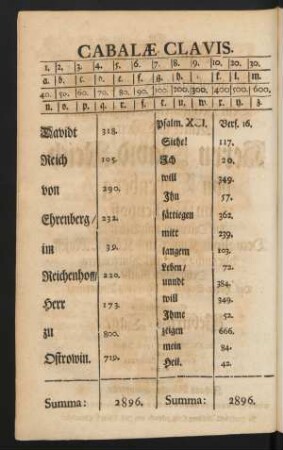 CABALÆ CLAVIS.
1. 2. 3. 4. 5. 6. 7. 8. 9. 10. 20. 30.
a. b. c. d. e. f. g. h. i. k. l. m.
40. 50. 60. 70. 80. 90. 100. 200. 300. 400. 500. 600.
n. o. p. q. r. s. t. u. w. x. y. z.
Psalm. XCI. Vers. 16.
Davidt 318. Siehe! 117.
Reich 105. Ich 20.
will 349.
von 290. Ihn 57.
Ehrenberg/ 232. sättiegen 362.
mitt 239.
im 39. langem 103.
Reichenhoff/ 220. Leben/ 72.
unndt 384.
Herr 173. will 349.
Ihme 52.
zu 800. zeigen 666.
mein 84.
Ostrowin. 719. Heil. 42.
Summa: 2896. Summa: 2896.